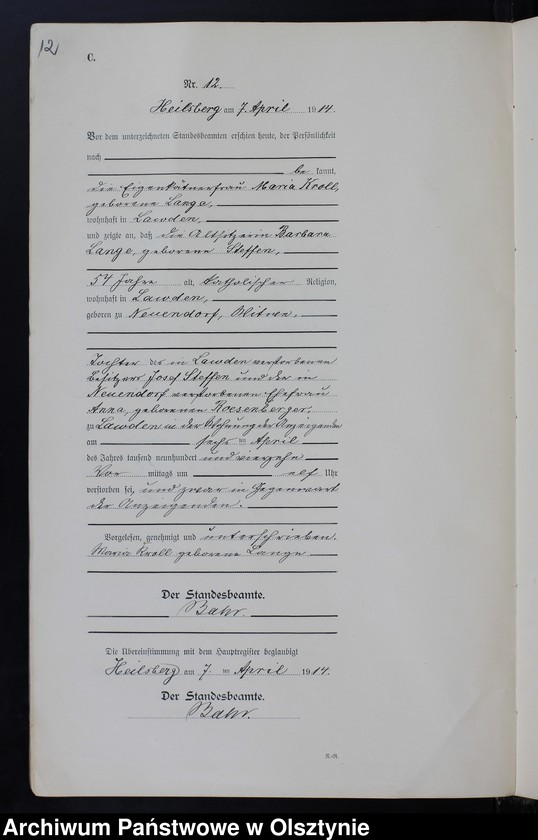 12
C.
Nr. 12.
Heilsberg am 7. April 1914.
Vor dem unterzeichneten Standesbeamten erschien heute, der Persönlichkeit
nach
be kannt,
die Eigenkätnerfrau Maria Kroll,
geborene Lange,
wohnhaft in Lawden,
und zeigte an, daß die Altsitzerin Barbara
Lange, geborene Steffen,
54 Jahre alt, katholischer Religion,
wohnhaft in Lawden,
geboren zu Neuendorf, Witwe,
Tochter des in Lawden verstorbenen
Besitzers Josef Steffen und der in
Neuendorf verstorbenen Ehefrau
Anna, geborenen Roesenberger,
zu Lawden in der Wohnung der Anzeigenden
am sechs ten April
des Jahres tausend neunhundert und vierzehn
Vor mittags um elf Uhr
verstorben sei, und zwar in Gegenwart
der Anzeigenden.
Vorgelesen, genehmigt und unterschrieben.
Maria Kroll geborene Lange
Der Standesbeamte.
Bahr.
Die Übereinstimmung mit dem Hauptregister beglaubigt
Heilsberg am 7. ten April 1914.
Der Standesbeamte.
Bahr.
Archiwum Państwowe w Olsztynie